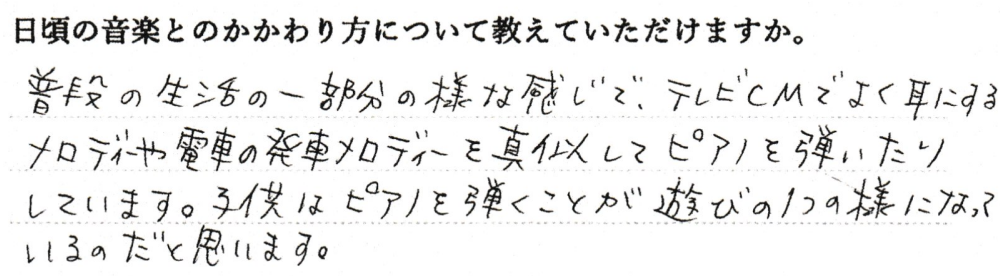 日頃の音楽とのかかわり方について教えていただけますか。
普段の生活の一部分の様な感じで、テレビCMでよく耳にする
メロディーや電車の発車メロディーを真似してピアノを弾いたり
しています。子供はピアノを弾くことが遊びの1つの様になって
いるのだと思います。